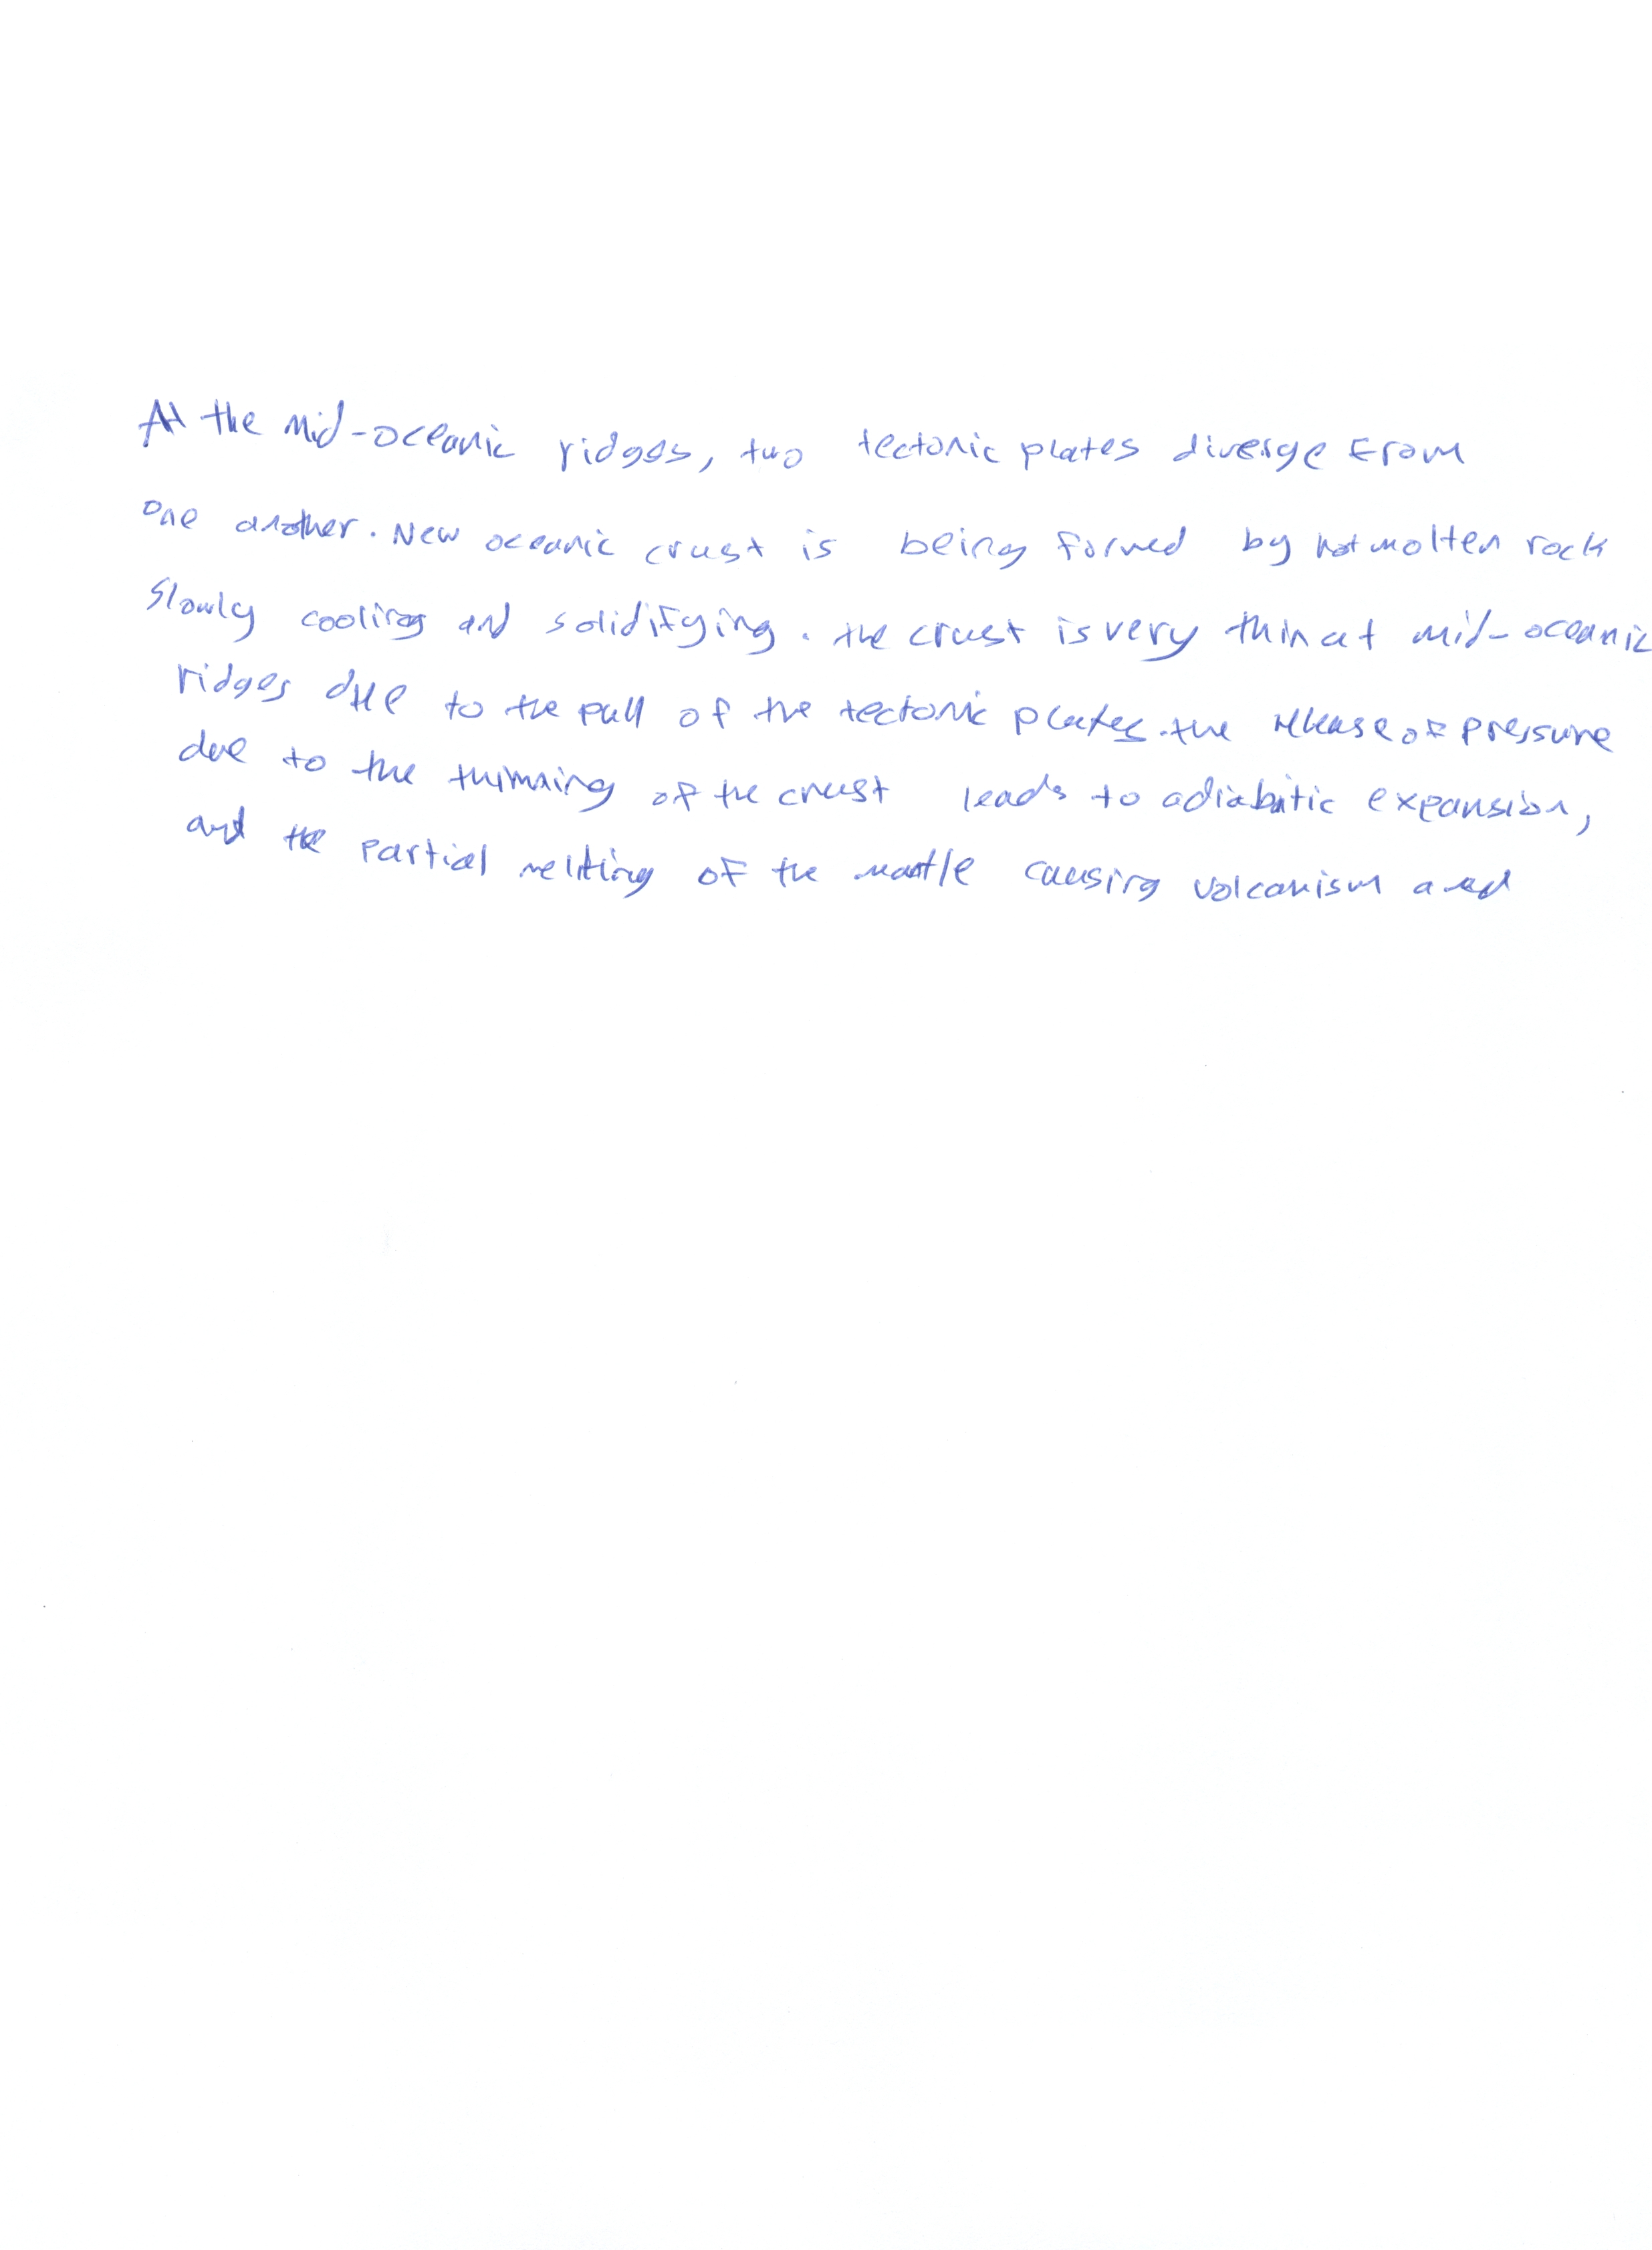 At the mid-oceanic ridges, two tectonic plates diverge from
one another. New oceanic crust is being formed by hot molten rock
slowly cooling and solidifying. the crust is very thin at mid-oceanic
ridges due to the pull of the tectonic plates. the release of pressure
due to the thinning of the crust leads to adiabitic expansion,
and the partial melting of the mantle causing volcanism and